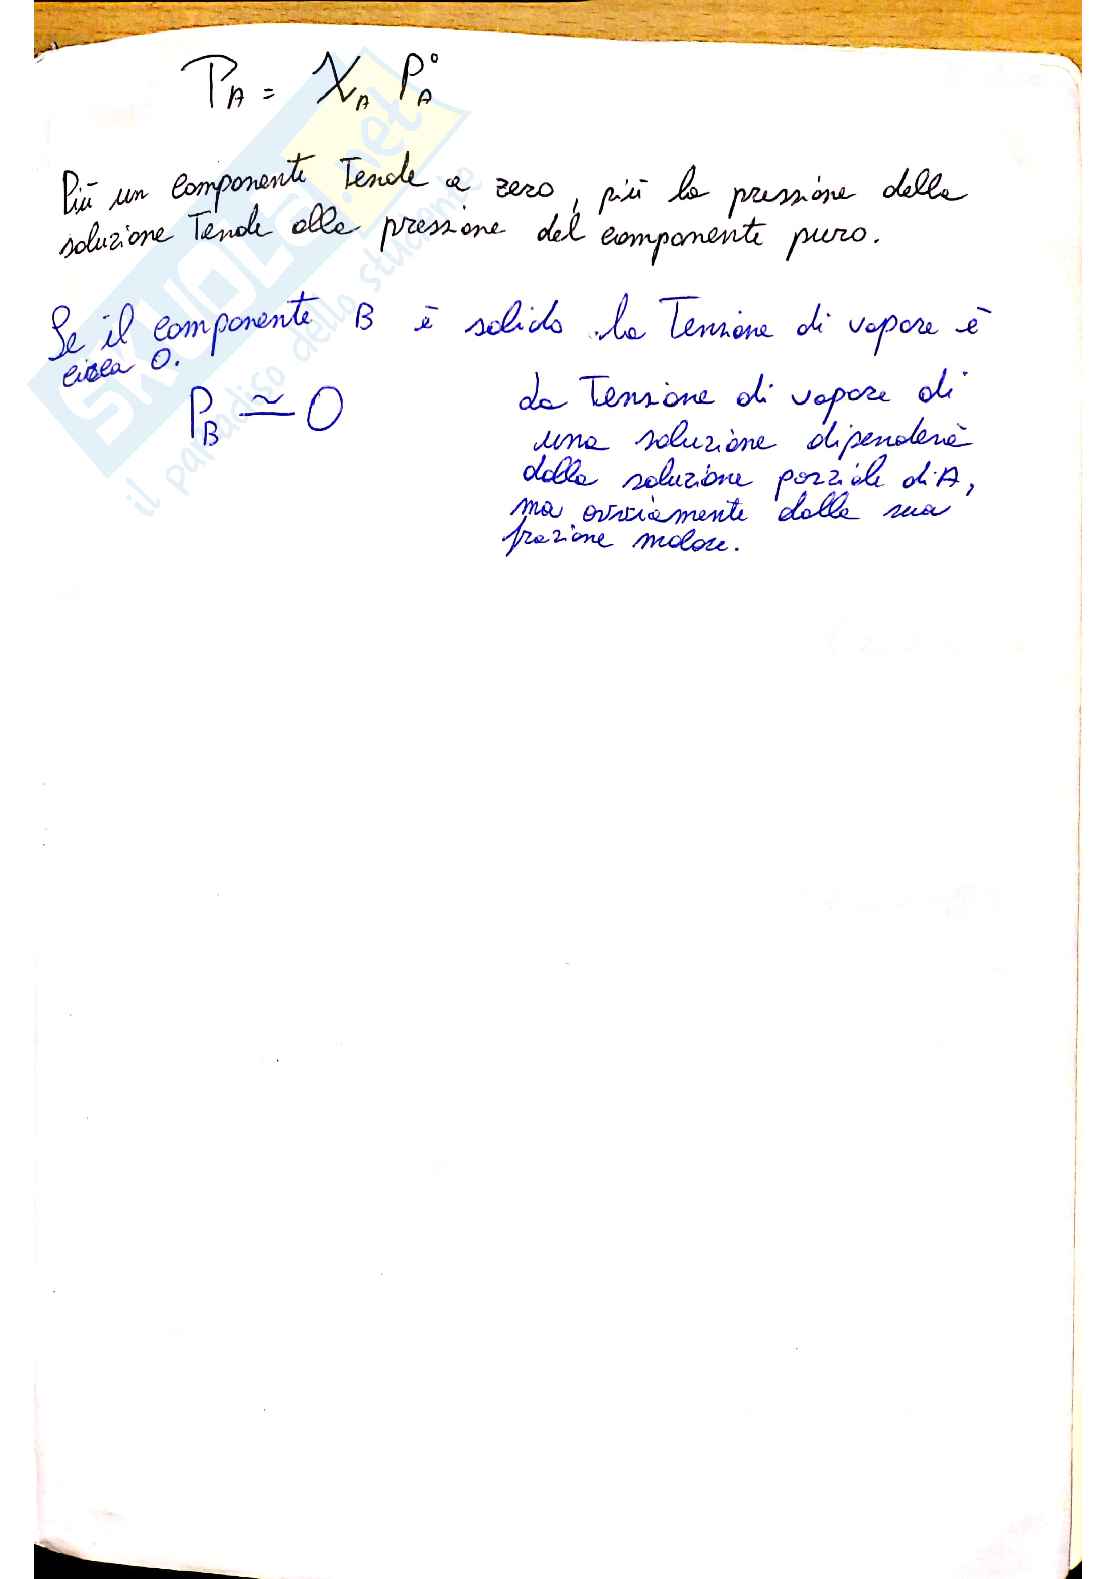 P_A = X_A P°_A
Più un componente tende a zero, più la pressione della
soluzione tende alla pressione del componente puro.
Se il componente B è solido la Tensione di vapore è
circa 0.
P_B ≃ 0
La Tensione di vapore di
una soluzione dipenderà
dalla soluzione parziale di A,
ma ovviamente dalla sua
frazione molare.
SKUOLA.net
il paradiso dello studente